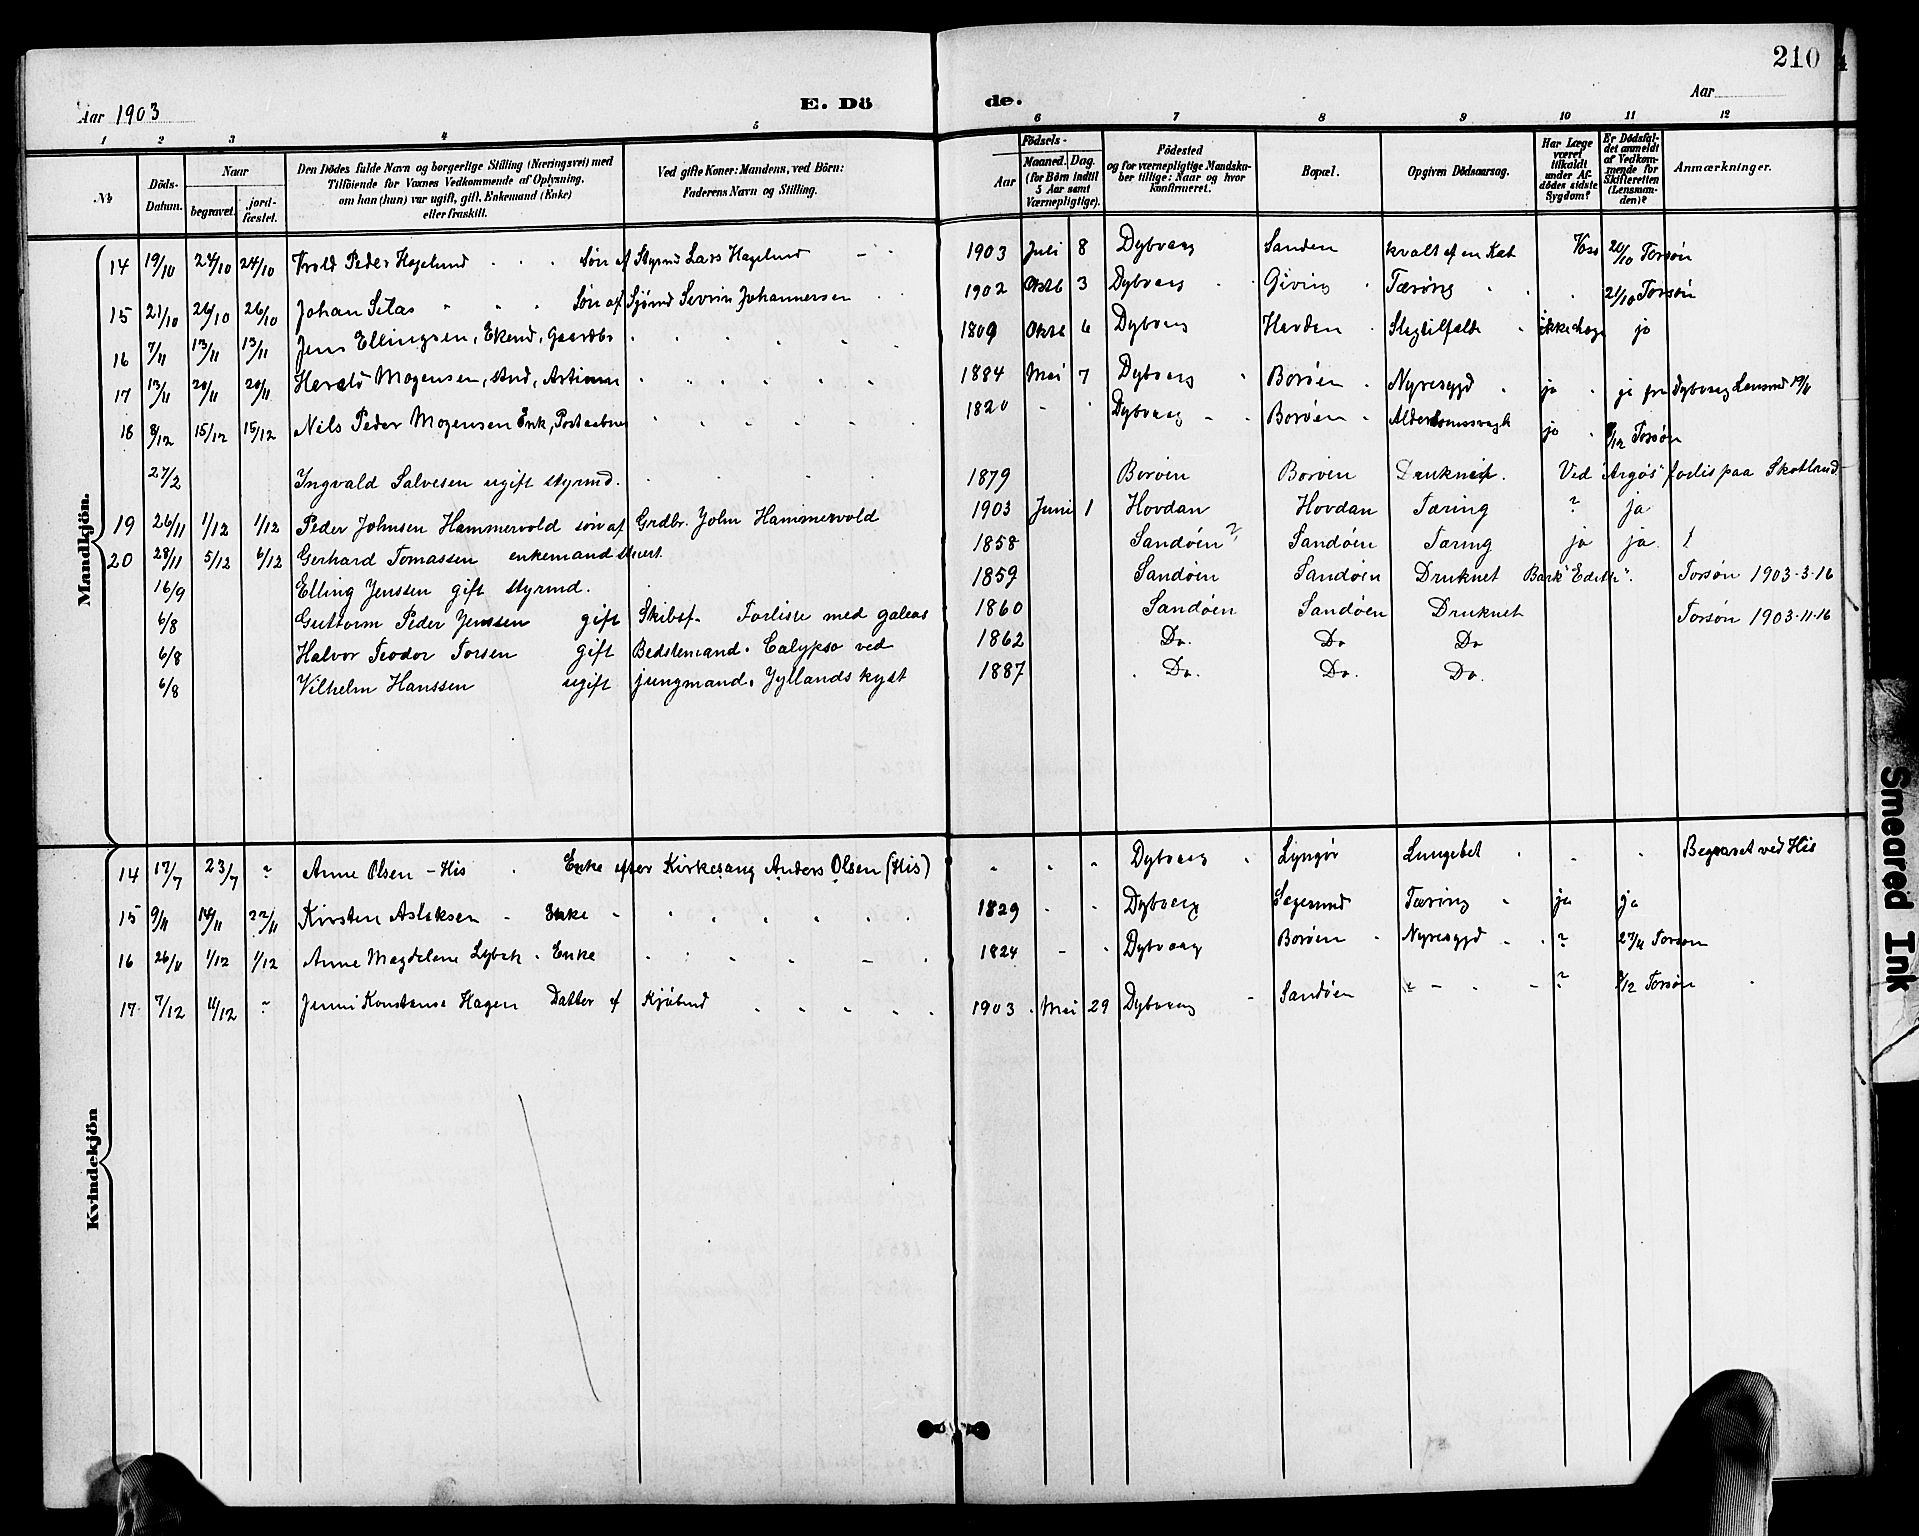 210
Aar 1903
E. Dö
de.
Aar
1 2 3 4 5 6 7 8 9 10 11 12
№
Döds-Datum.
Naar
begravet.
jord-fæstet.
Den Dödes fulde Navn og borgerlige Stilling (Næringsvei) med
Tilföiende for Voxnes Vedkommende af Oplysning,
om han (hun) var ugift, gift, Enkemand (Enke)
eller fraskilt.
Ved gifte Koner: Mandens, ved Börn:
Faderens Navn og Stilling.
Födsels-
Aar
Maaned. Dag.
(for Börn indtil
5 Aar samt
Værnepligtige).
Födested
og for værnepligtige Mandska-
ber tillige: Naar og hvor
Konfirmeret.
Bopæl.
Opgiven Dödsaarsag.
Har Læge
været
tilkaldt
under Af-
dødes sidste
Sygdom?
Er Dödsfal-
det anmeldt
af Vedkom-
mende for
Skifteretten
(Lensman-
den)?
Anmærkninger.
Mandkjön.
14 19/10 24/10 24/10 Trold Peder Hagelund Søn af Styrmd Lars Hagelund 1903 Juli 8 Dybvaag Sanden kvalt af en Kat Voss 20/10 Torsøn
15 21/10 26/10 26/10 Johan Silas Søn af Sjømd Severin Johannersen 1902 Oktb 3 Dybvaag Giving Tæring 21/10 Torsøn
16 7/11 13/11 13/11 Jens Ellingsen, Ekemd, Gaardbr 1809 Oktb 6 Dybvaag Havden Slagtilfælde ikke Læge jo
17 13/11 20/11 20/11 Harald Mogensen, stud. Artium 1884 Mai 7 Dybvaag Borøen Nyresygd ja ja fra Dybvaag Lensmd 19/11
18 8/12 15/12 15/12 Nils Peder Mogensen Enk, Postaabner 1820 Dybvaag Borøen Alderdomssvagh ja 9/12 Torsøn
27/2 Ingvald Salvesen ugift styrmd. 1879 Borøen Borøen Druknet. Ved "Argos" forlis paa Skotland
19 26/11 1/12 1/12 Peder Johnsen Hammervold søn af Grdbr. John Hammervold 1903 Juni 1 Hovdan Hovdan Tæring ? ja
20 28/11 5/12 6/12 Gerhard Tomassen enkemand stuert. 1858 Sandøen ? Sandøen Tæring ja ja
16/9 Elling Jenssen gift styrmd. 1859 Sandøen Sandøen Druknet Bark "Edith". Torsøn 1903-3-16
6/8 Guttorm Peder Jenssen gift Skibsf. Forliste med galeas 1860 Sandøen Sandøen Druknet Torsøn 1903-11-16
6/8 Halvor Teodor Torsen gift Bedstemand. Calypso ved 1862 Do. Do. Do
6/8 Vilhelm Hanssen ugift jungmand. Jyllands kyst 1887 Do. Do. Do.
Kvindekjön
14 17/7 23/7 ? Anne Olsen - His Enke efter Kirkesang Anders Olsen (His) Dybvaag Lyngør Lungebet Begravet ved His
15 9/11 14/11 22/11 Kirsten Aslaksen Enke 1829 Dybvaag Sagesund Tæring ja ja
16 26/11 1/12 1/12 Anne Magdelene Lybek Enke 1824 Dybvaag Borøen Nyresygd ? 27/11 Torsøn
17 7/12 11/12 ? Jenni Konstanse Hagen Datter af Kjøbmd 1903 Mai 29 Dybvaag Sandøen ? 8/12 Torsøn
Smeared Ink